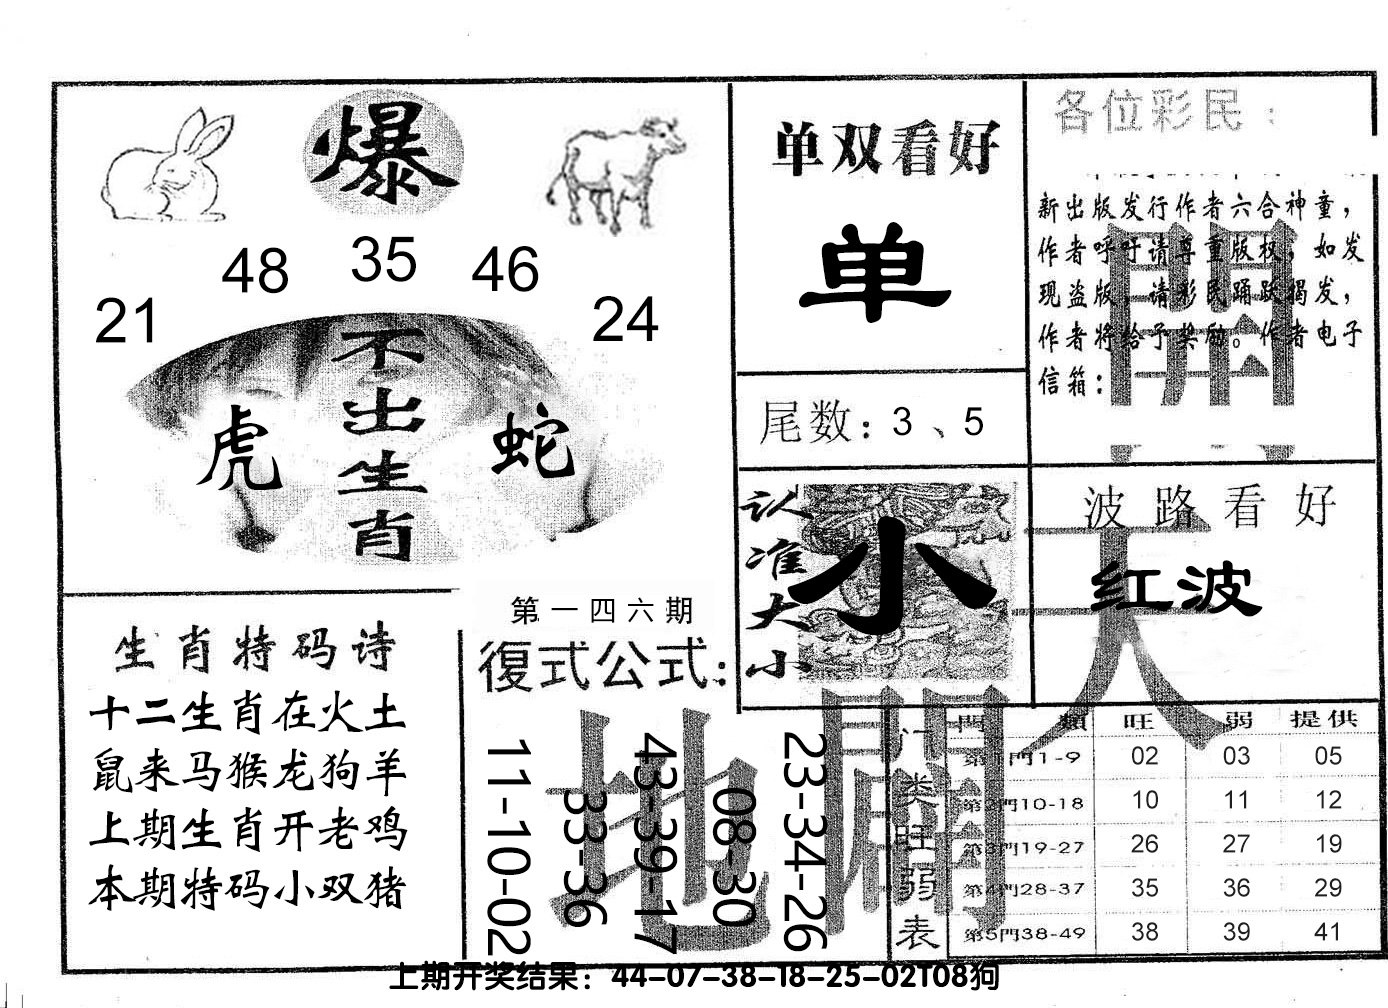 爆
21 48 35 46 24
不出生肖
虎 蛇
生肖特码诗
十二生肖在火土
鼠来马猴龙狗羊
上期生肖开老鸡
本期特码小双猪
第一四六期
復式公式：
11-10-02
33-36
43-39-17
08-30
23-34-26
单双看好
单
尾数：3、5
认准大小
小
各位彩民：
新出版发行作者六合神童，
作者呼吁请尊重版权，如发
现盗版，请彩民踊跃揭发，
作者将给予奖励。作者电子
信箱：
波路看好
红波
天
地
開
門类旺弱表
門類 旺 弱 提供
第1門1-9 02 03 05
第2門10-18 10 11 12
第3門19-27 26 27 19
第4門28-37 35 36 29
第5門38-49 38 39 41
上期开奖结果：44-07-38-18-25-02T08狗